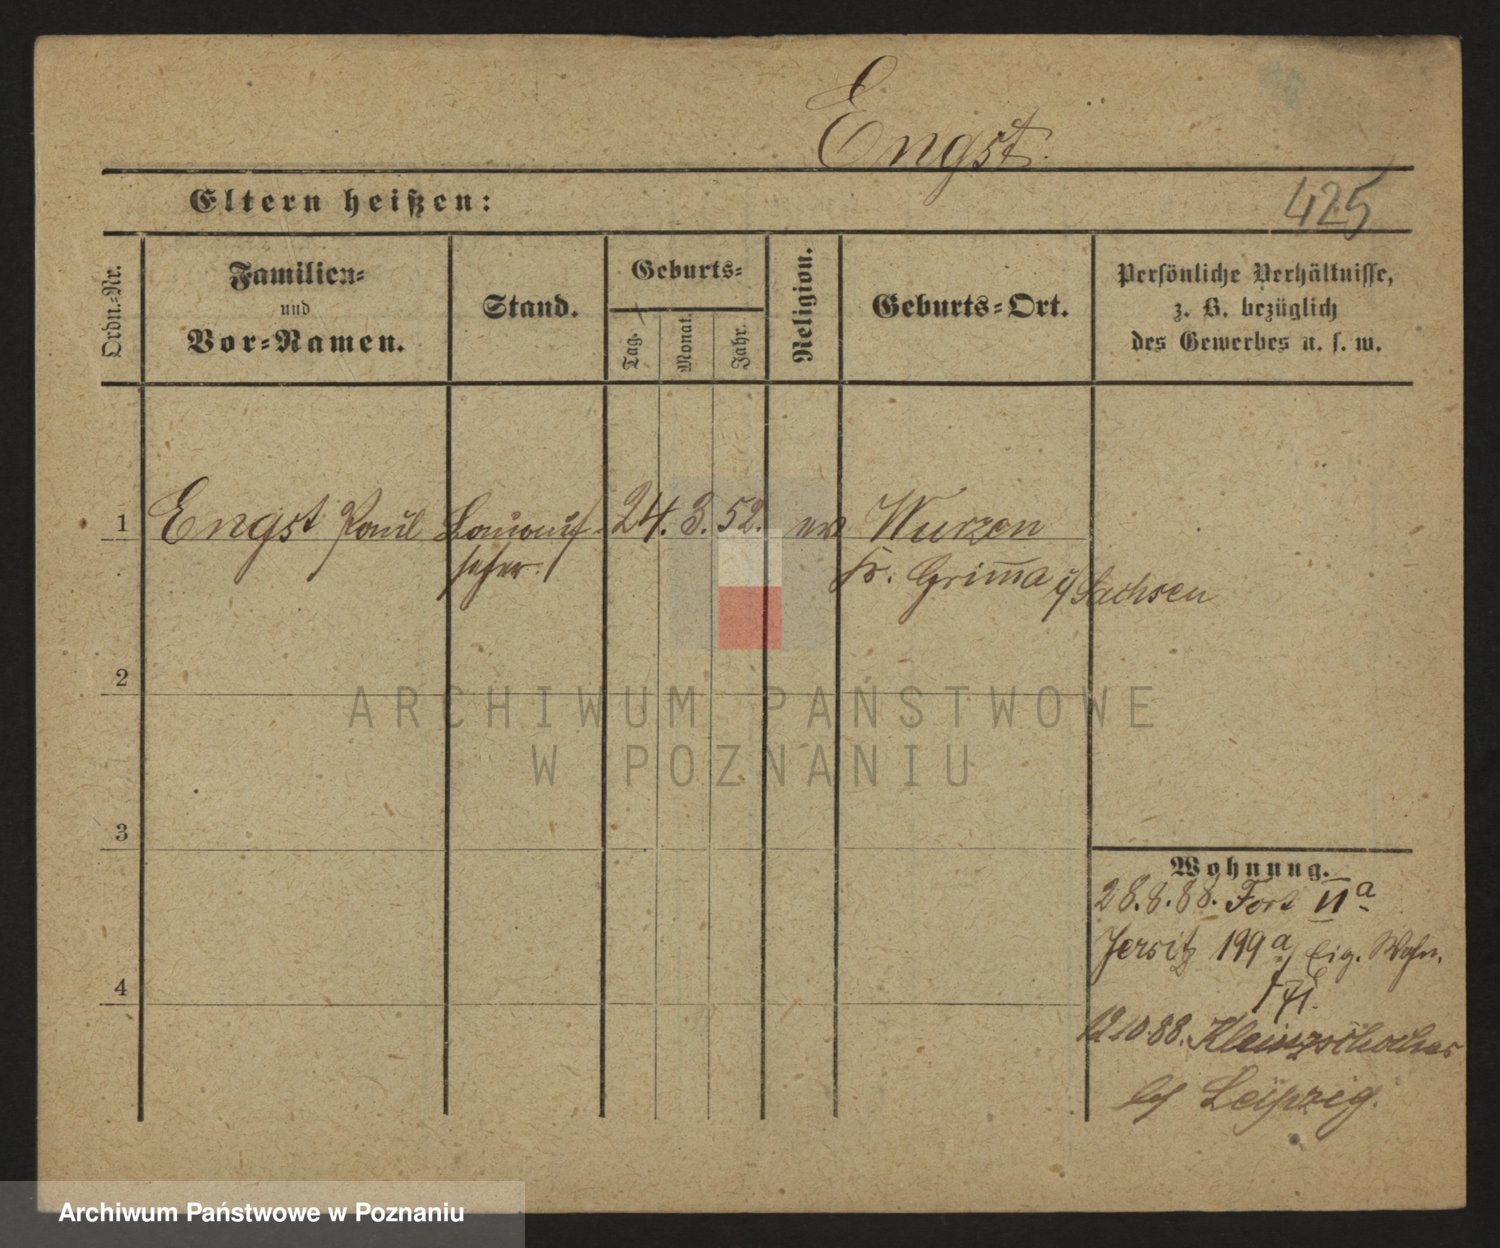 Engst.
Eltern heißen:
425
Ordn.-Nr.
Familien-
und
Vor-Namen.
Stand.
Geburts-
Tag.
Monat.
Jahr.
Religion.
Geburts-Ort.
Persönliche Verhältnisse,
z. B. bezüglich
des Gewerbes u. s. w.
1 Engst Paul Bauauf- 24. 3. 52. ev Wurzen
seher. Kr. Grimma i/Sachsen
2
ARCHIWUM PAŃSTWOWE
W POZNANIU
3
Wohnung.
28.8.88. Fort II a
Jersitz 199a, Eig. Wohn.
4
12.10.88. Kleinzschocher
b/ Leipzig.
Archiwum Państwowe w Poznaniu